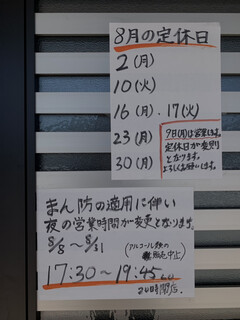 8月の定休日
2(月)
10(火)
16(月).17(火)
23(月)
30(月)
9日(月)は営業します。
定休日が変則
となります。
よろしくお願いします。
まん防の適用に伴い
夜の営業時間が変更となります。
8/8〜8/31
(アルコール類の
販売中止)
17:30〜19:45 L.O
20時閉店.